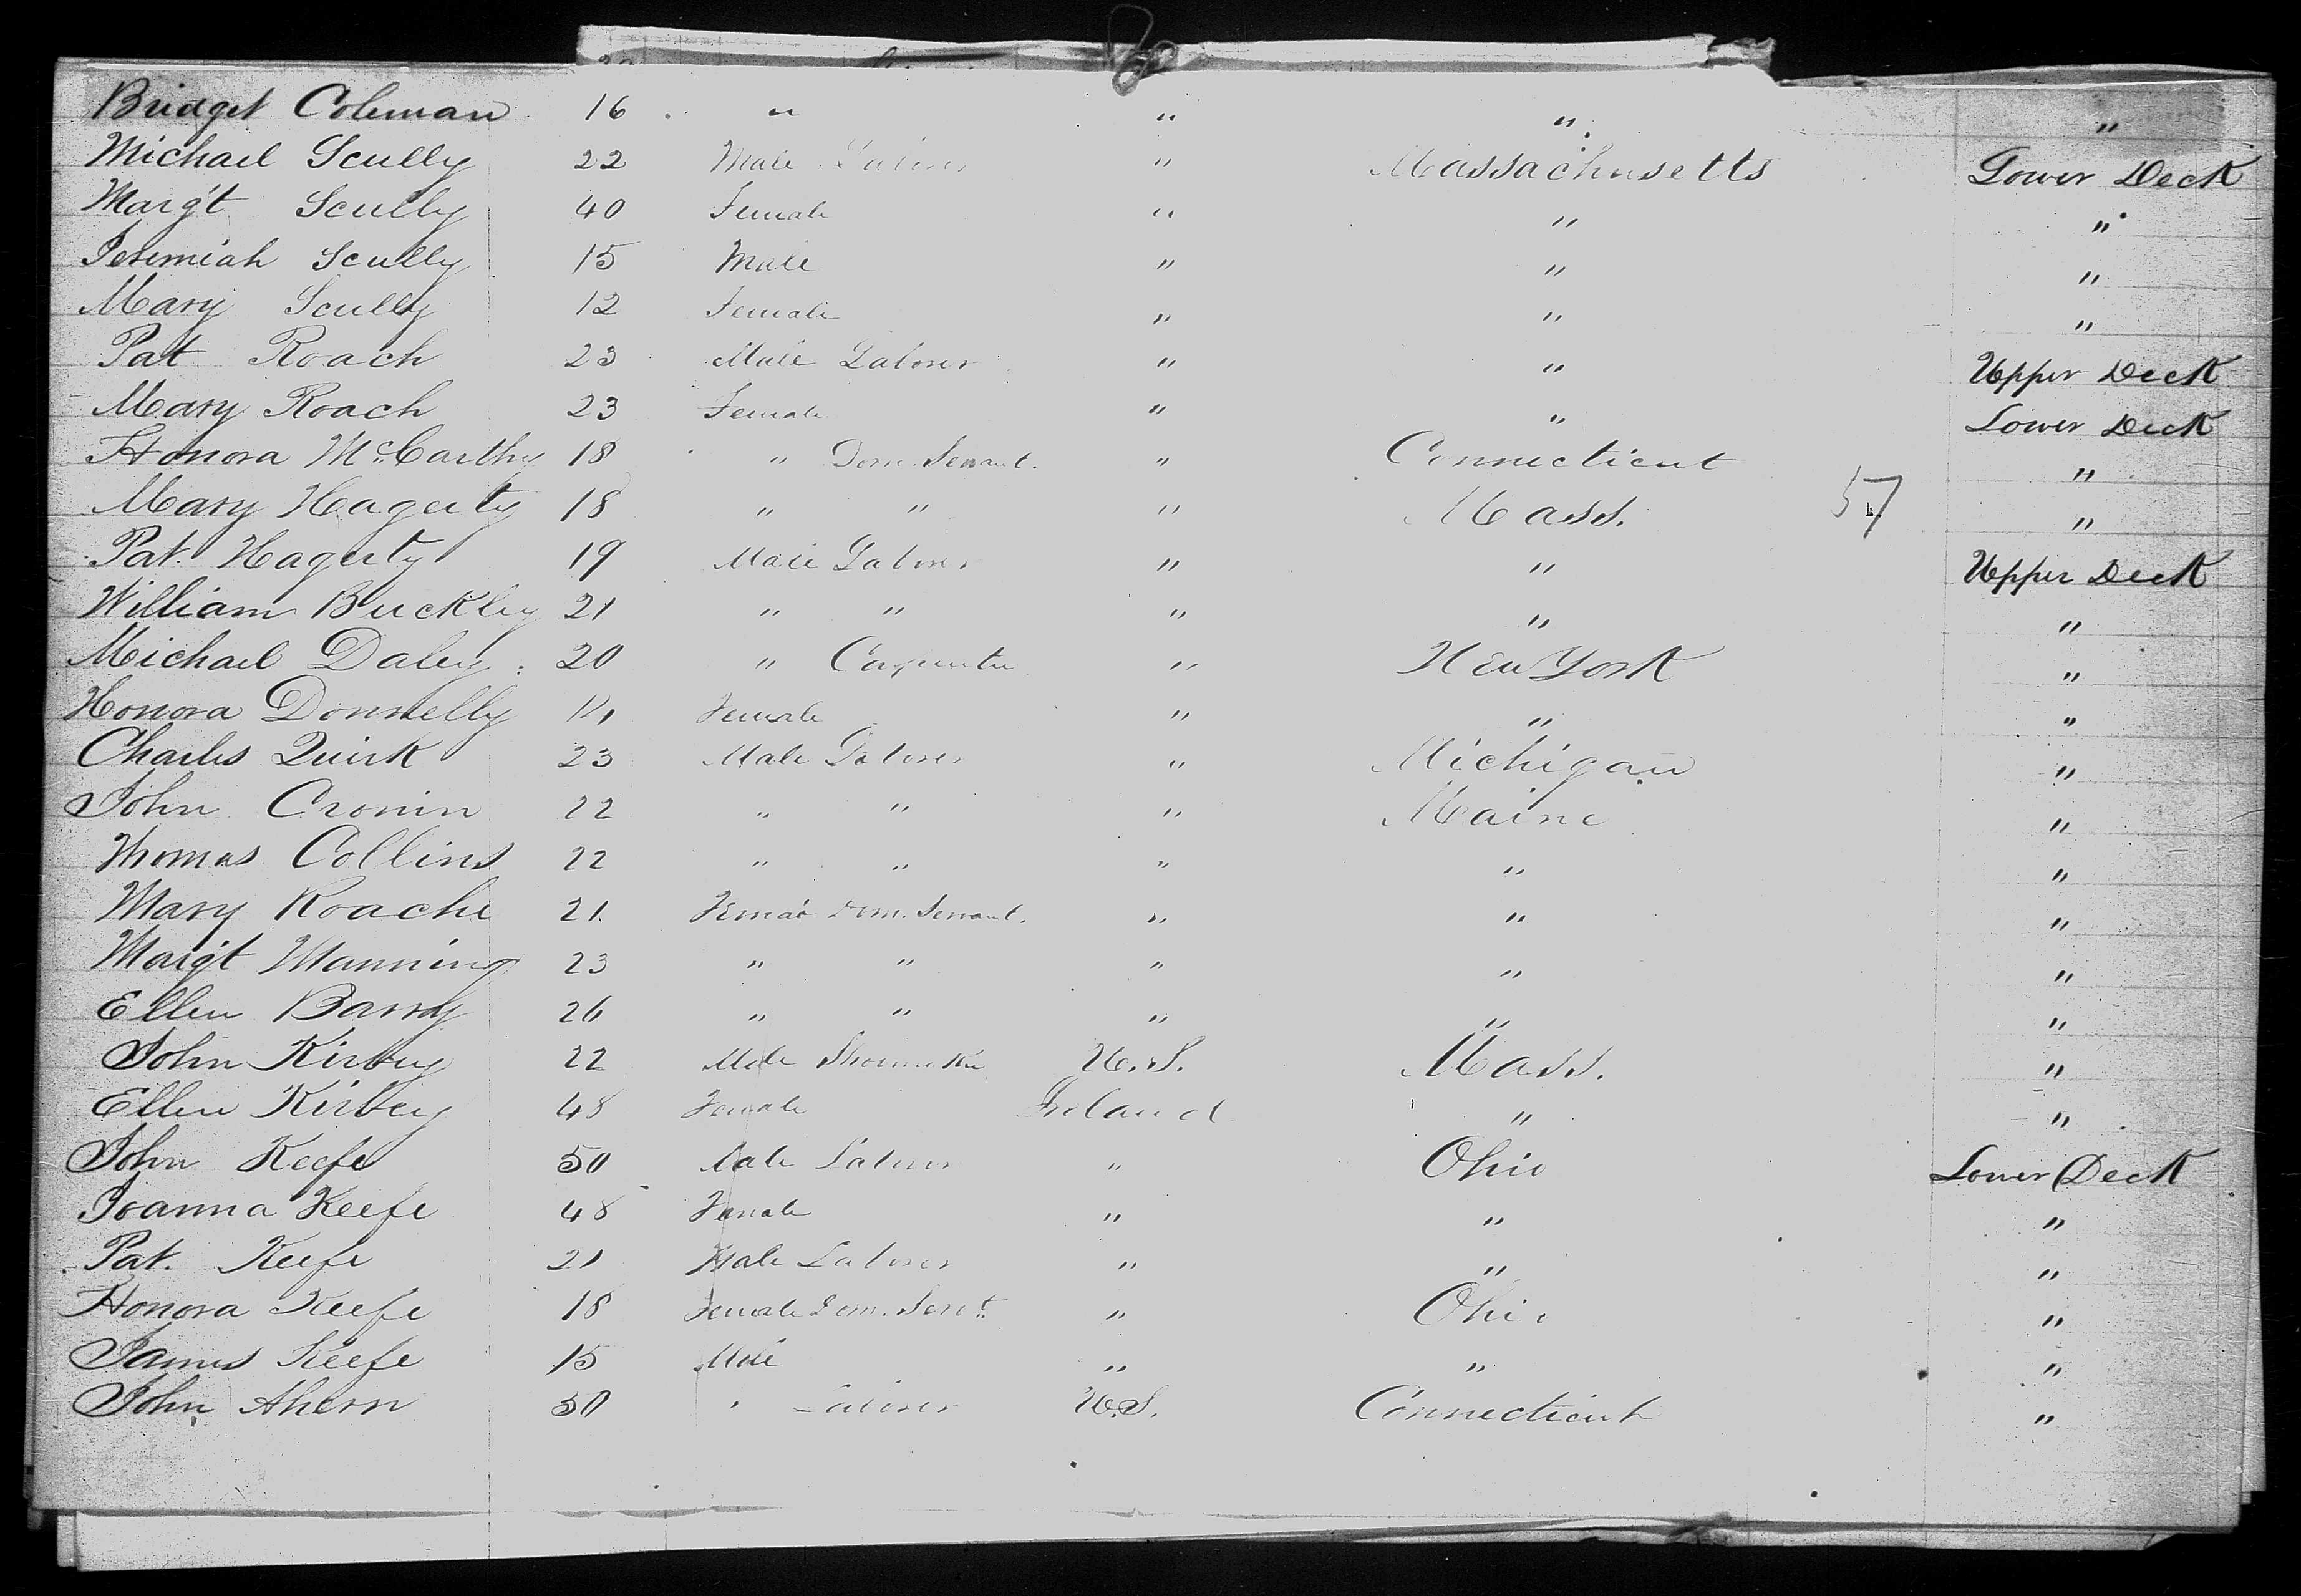 Bridget Coleman 16 " " " "
Michael Scully 22 Male Laborer " Massachusetts Lower Deck
Marg't Scully 40 Female " " "
Jeremiah Scully 15 Male " " "
Mary Scully 12 Female " " "
Pat Roach 23 Male Laborer " " Upper Deck
Mary Roach 23 Female " " Lower Deck
Honora McCarthy 18 " Dom. Servant. " Connecticut "
Mary Hagerty 18 " " " Mass. 57 "
Pat. Hagerty 19 Male Laborer " " Upper Deck
William Buckley 21 " " " " "
Michael Daley 20 " Carpenter " New York "
Honora Donnelly Female " " "
Charles Quirk 23 Male Laborer " Michigan "
John Cronin 22 " " " Maine "
Thomas Collins 22 " " " " "
Mary Roache 21 Female Dom. Servant. " " "
Marg't Manning 23 " " " " "
Ellen Barry 26 " " " " "
John Kirbey 22 Male Shoemaker U.S. Mass. "
Ellen Kirbey 48 Female Ireland " "
John Keefe 50 Male Laborer " Ohio Lower Deck
Joanna Keefe 48 Female " " "
Pat. Keefe 21 Male Laborer " " "
Honora Keefe 18 Female Dom. Servt. " Ohio "
James Keefe 15 Male " " "
John Ahern 50 " Laborer U.S. Connecticut "